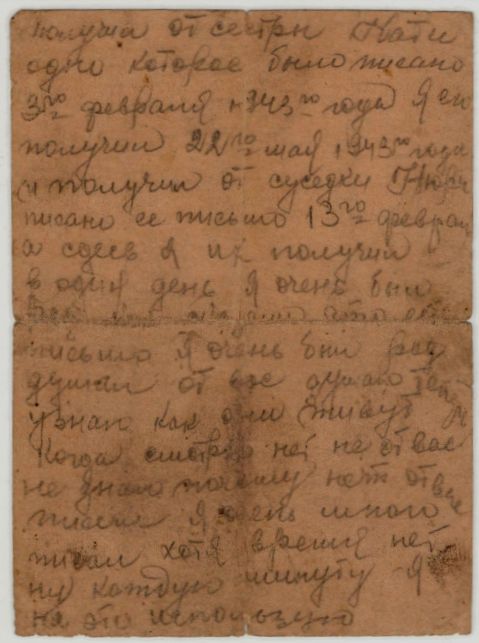 получил от сестры Кати
одно которое было писано
3го февраля 1943го года я ево
получил 22го мая 1943го года
и получил от суседки Нюры
писано ее письмо 13го феврал
а сдесь я их получил
в один день я очень был
письмо я очень был рад
думал от вас думаю теперь
узнаю как они живут
Когда смотрю нет не от вас
не знаю почему нет от вас
писем я очень много
писал хотя время нет
ну каждую минуту я
на это использую